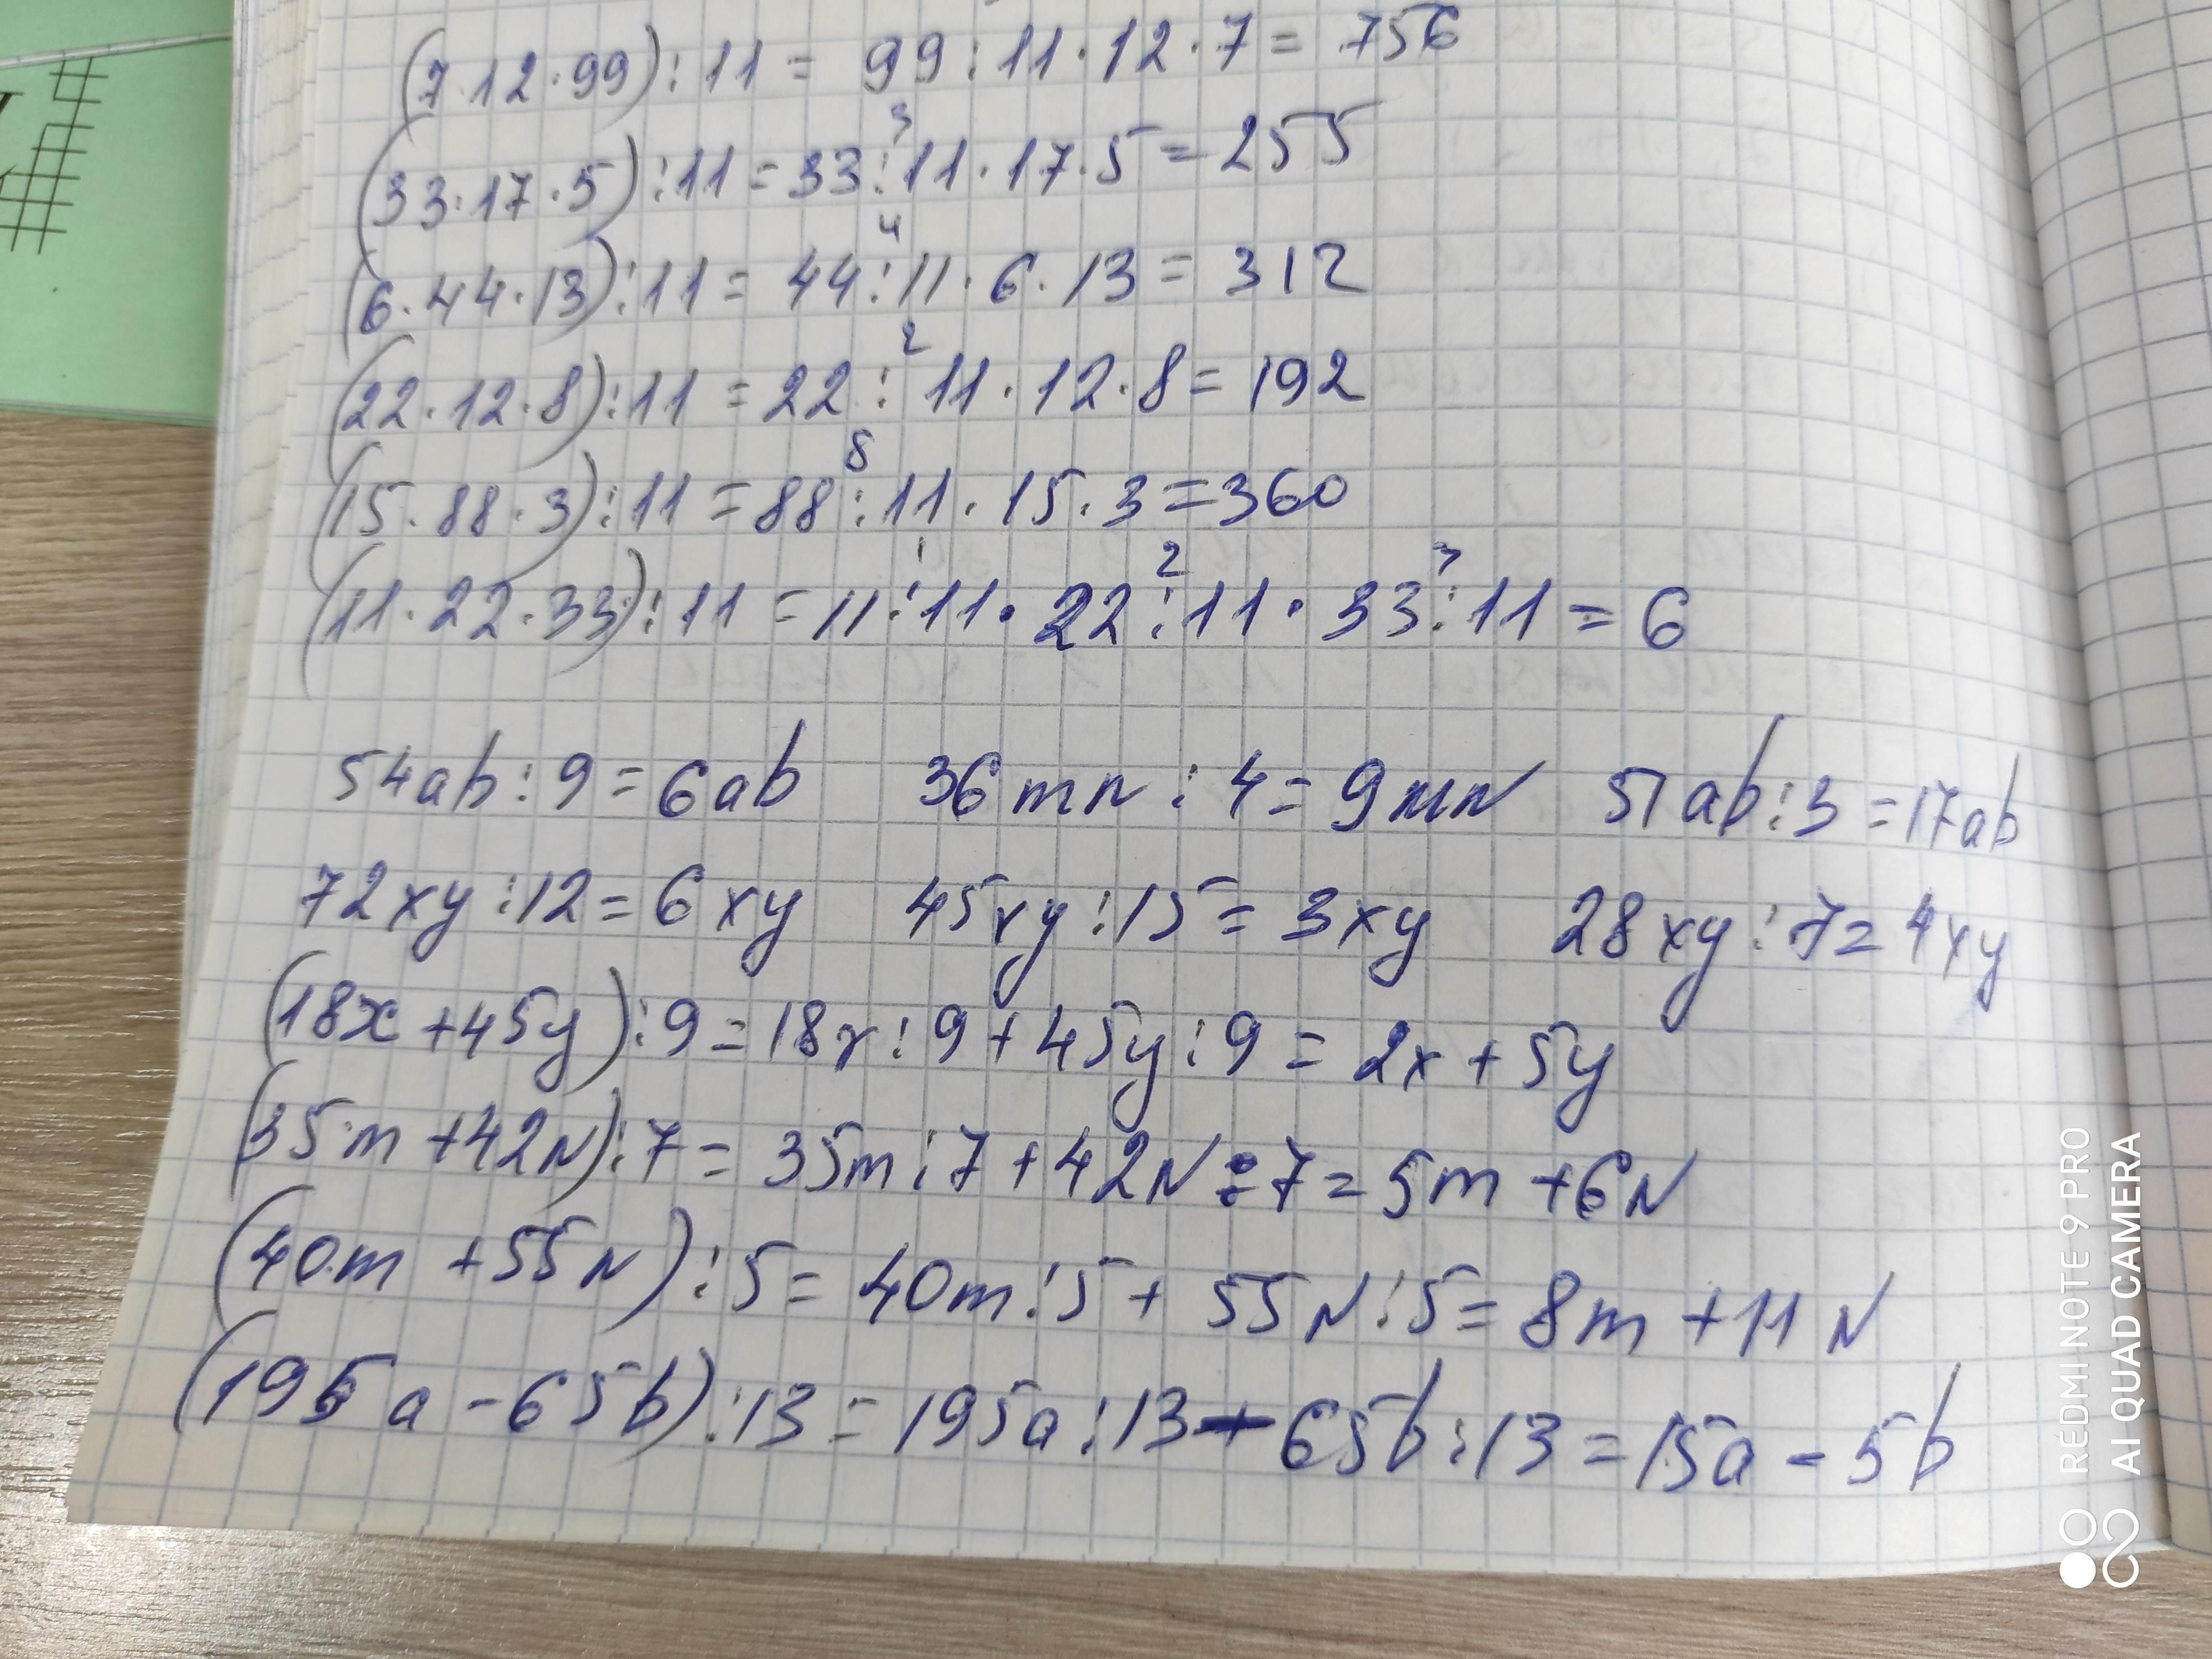 (7·12·99):11 = 99:11·12·7 = 756
3
(33·17·5):11 = 33:11·17·5 = 255
4
(6·44·13):11 = 44:11·6·13 = 312
2
(22·12·8):11 = 22:11·12·8 = 192
8
(15·88·3):11 = 88:11·15·3 = 360
1 2 3
(11·22·33):11 = 11:11·22:11·33:11 = 6
54ab:9 = 6ab 36mn:4 = 9mn 51ab:3 = 17ab
72xy:12 = 6xy 45xy:15 = 3xy 28xy:7 = 4xy
(18x+45y):9 = 18x:9+45y:9 = 2x+5y
(35m+42N):7 = 35m:7+42N:7 = 5m+6N
(40m+55N):5 = 40m:5+55N:5 = 8m+11N
(195a-65b):13 = 195a:13-65b:13 = 15a-5b
REDMI NOTE 9 PRO
AI QUAD CAMERA